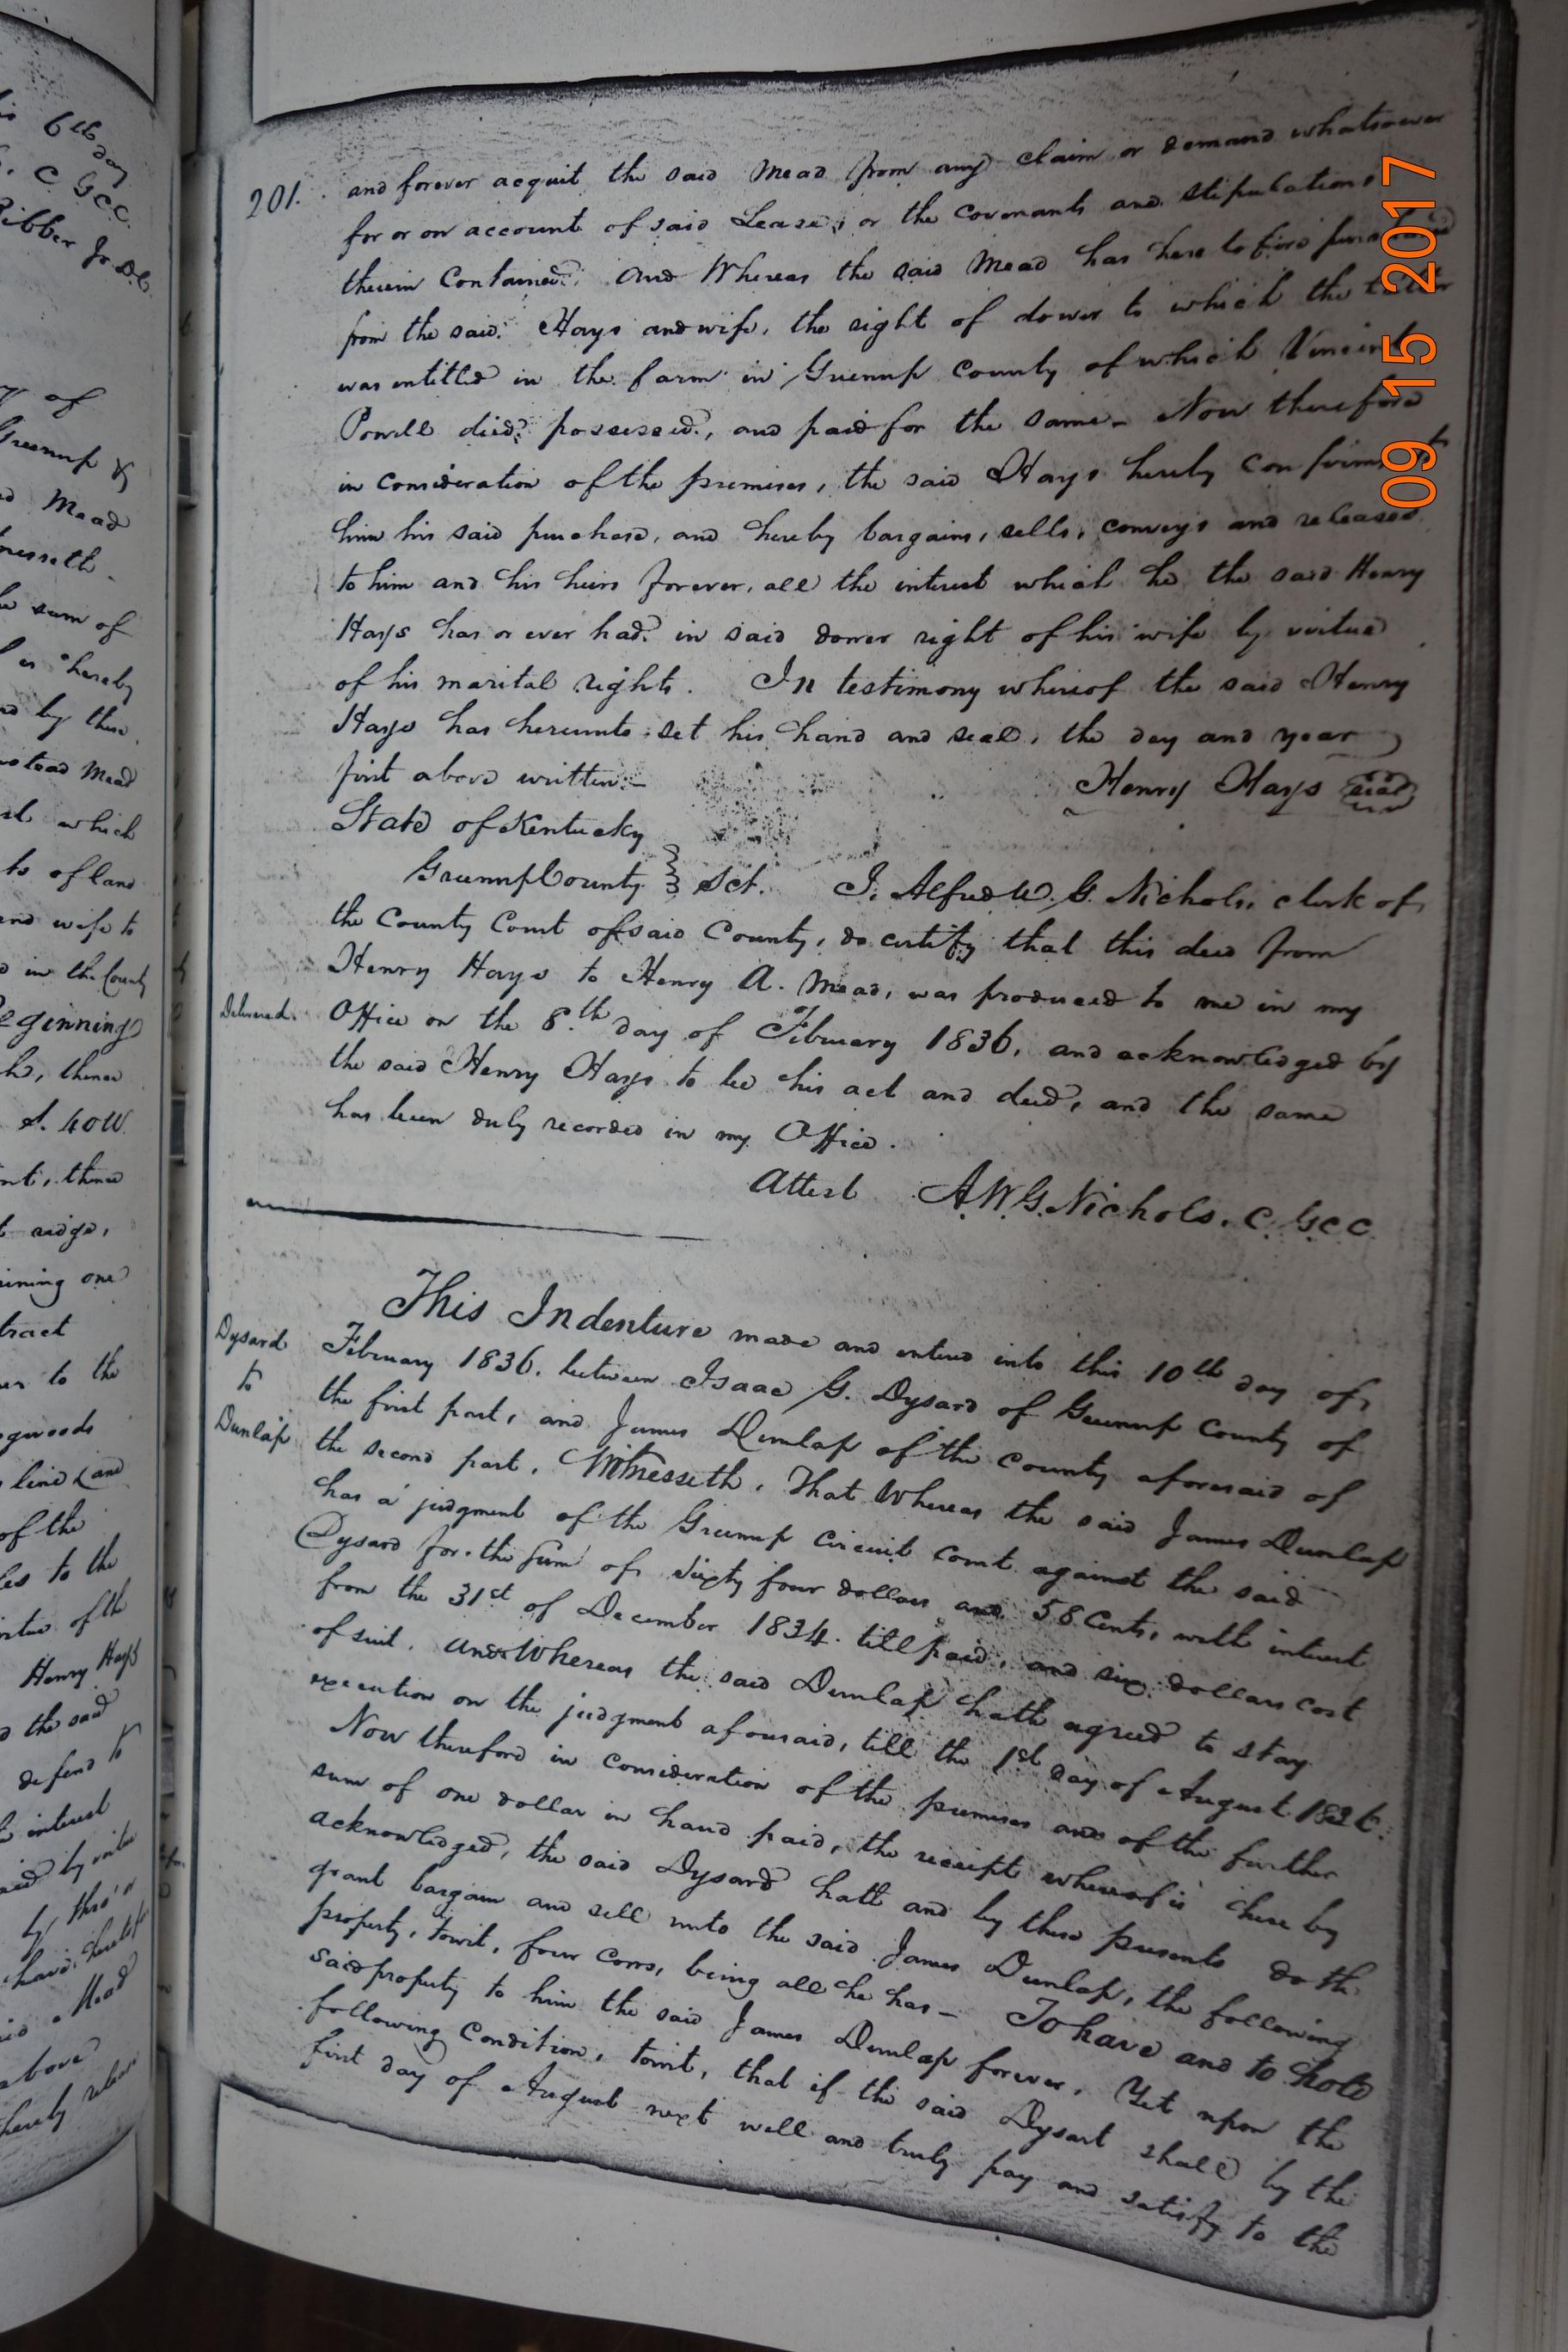 is 6th day
C GCC
Ribber Jr D.C.
of
Greenup &
Mead
nesseth
sum of
is hereby
by these
Mead
which
to of land
and wife to
in the County
Beginning
thence
S. 40 W.
thence
ridge,
ining one
tract
to the
gwoods
line & and
of the
les to the
virtue of th
Henry Hays
the said
defend
interest
by virtue
by this
have hereto
Mead
above
hereby release
201. and forever acquit the said Mead from any claim or demand whatsoever
for or on account of said Lease, or the covenants and stipulations
therein Contained. And Whereas the said Mead has here to fore purchased
from the said Hays and wife, the right of dower to which the latter
was intitled in the farm in Greenup County of which Vincent
Powell died possessed, and paid for the same. Now therefore
in consideration of the premises, the said Hays hereby confirms to
him his said purchase, and hereby bargains, sells, conveys and releases
to him and his heirs forever, all the interest which he the said Henry
Hays has or ever had in said dower right of his wife by virtue
of his marital rights. In testimony whereof the said Henry
Hays has hereunto set his hand and seal, the day and year
first above written.
Henry Hays seal
State of Kentucky
Greenup County Sct. I, Alfred W. G. Nichols, clerk of
the County Court of said County, do certify that this deed from
Henry Hays to Henry A. Mead, was produced to me in my
Delivered. Office on the 8th day of February 1836, and acknowledged by
the said Henry Hays to be his act and deed, and the same
has been duly recorded in my Office.
Attest A.W.G. Nichols. C. GCC
This Indenture made and entered into this 10th day of
Dysard to Dunlap
February 1836. between Isaac G. Dysard of Greenup County of
the first part, and James Dunlap of the County aforesaid of
the second part, Witnesseth, That Whereas the said James Dunlap
has a judgment of the Greenup circuit court against the said
Dysard for the sum of Sixty four dollars and 58 Cents, with interest
from the 31st of December 1834. till paid, and six dollars cost
of suit. And Whereas the said Dunlap hath agreed to stay
execution on the judgment aforesaid, till the 1st day of August 1836.
Now therefore in consideration of the premises and of the further
sum of one dollar in hand paid, the receipt whereof is here by
acknowledged, the said Dysard hath and by these presents doth
grant bargain and sell unto the said James Dunlap, the following
property, towit, four Cows, being all he has — To have and to hold
said property to him the said James Dunlap forever, Yet upon the
following Condition, towit, that if the said Dysart shall by the
first day of August next well and truly pay and satisfy to the
09 15 2017